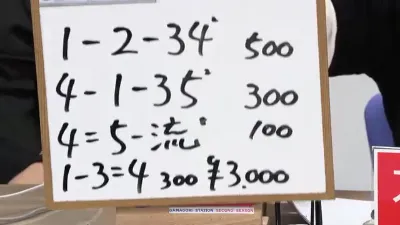 1-2-34 500
4-1-35 300
4=5-流 100
1-3=4 300 ¥3.000
GAMAGORI STATION SECOND SEASON